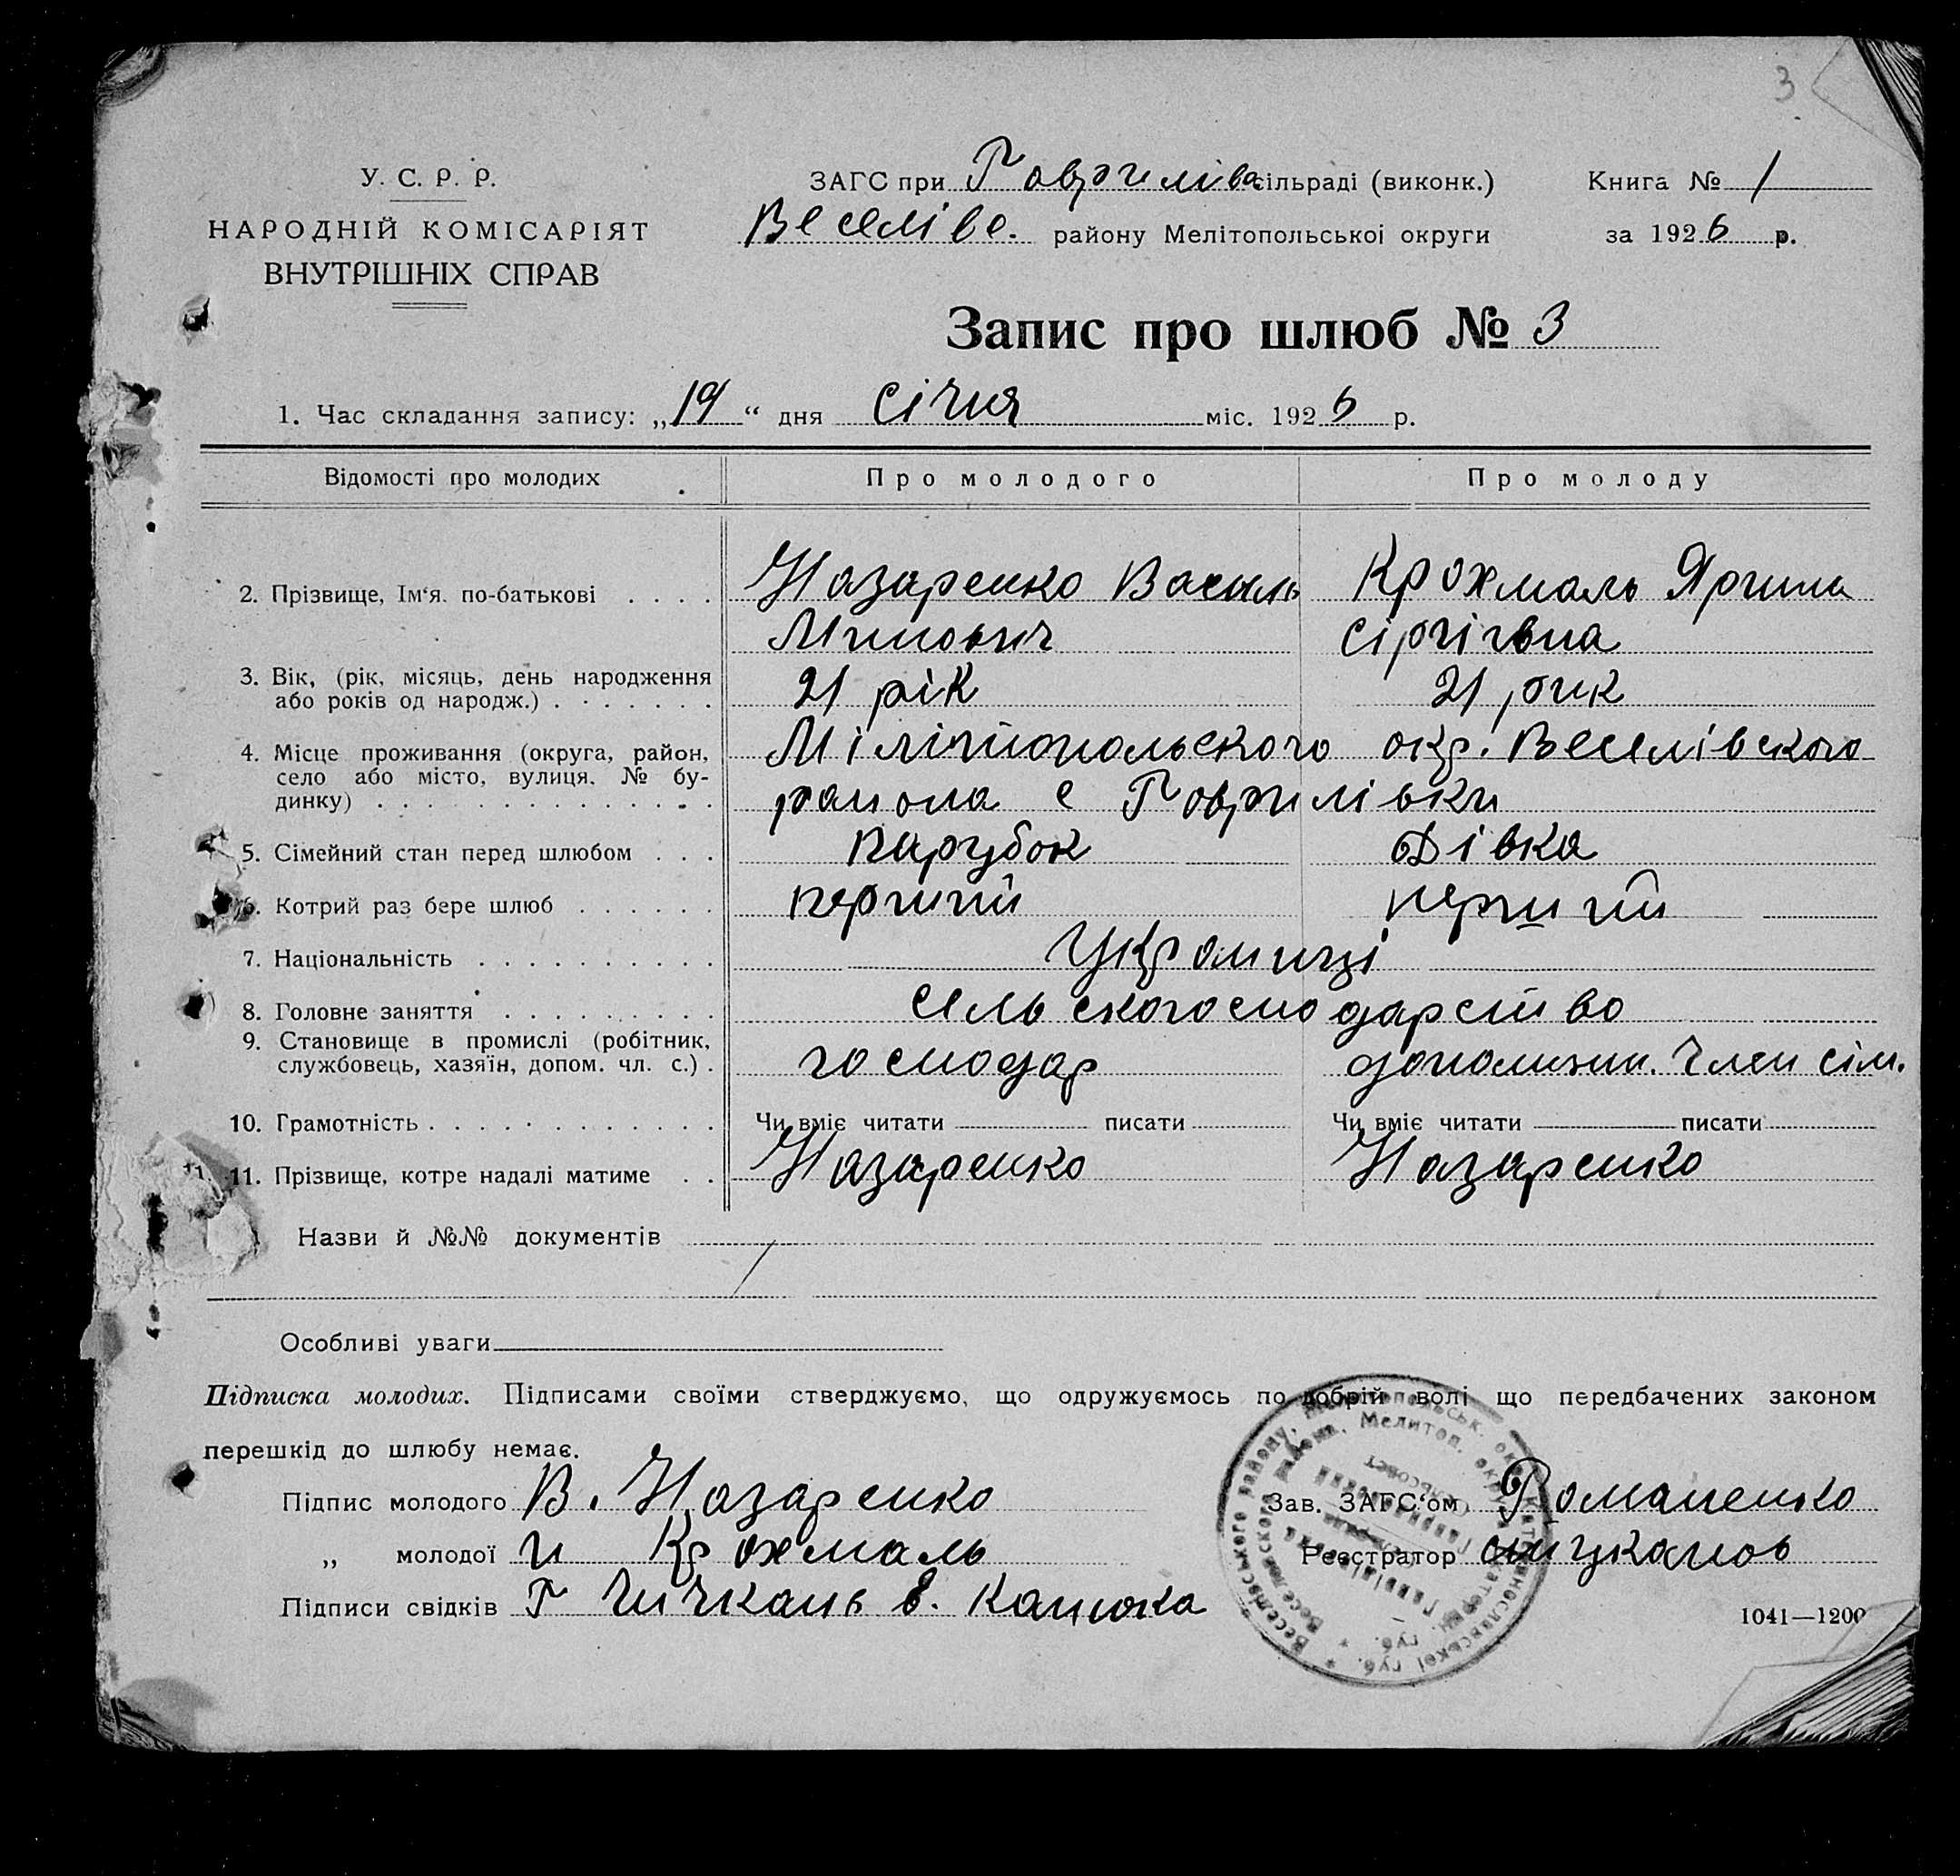 3
У. С. Р. Р.
НАРОДНІЙ КОМІСАРІЯТ
ВНУТРІШНІХ СПРАВ
ЗАГС при Говриливсільраді (виконк.)
Веселіве. району Мелітопольської округи
Книга № 1
за 1926 р.
Запис про шлюб № 3
1. Час складання запису: „19“ дня Січня міс. 1926 р.
Відомості про молодих Про молодого Про молоду
2. Прізвище, Ім‘я. по-батькові . . . . Назаренко Василь Крохмаль Ярина
Минович Сіргівна
3. Вік, (рік, місяць, день народження
або років од народж.) . . . . . . . 21 рік 21 рик
4. Місце проживання (округа, район, Мілітопольского окр. Веселівского
село або місто, вулиця, № бу-
динку) . . . . . . . . . . . . . . района с Говрилівки
5. Сімейний стан перед шлюбом . . . парубок Дівка
6. Котрий раз бере шлюб . . . . . . перший перший
7. Національність . . . . . . . . . . Украинці
8. Головне заняття . . . . . . . . . Сельскогосподарство
9. Становище в промислі (робітник,
службовець, хазяїн, допом. чл. с.) . господар допомизни. Член сім.
10. Грамотність . . . . . . . . . . . . Чи вміє читати писати Чи вміє читати писати
11. Прізвище, котре надалі матиме . . Назаренко Назаренко
Назви й №№ документів
Особливі уваги
Підписка молодих. Підписами своїми стверджуємо, що одружуємось по добрій волі що передбачених законом
перешкід до шлюбу немає.
Підпис молодого В. Назаренко
„ молодої и Крохмаль
Підписи свідків Г Чичкань в.
Зав. ЗАГС‘ом Романенко
Реєстратор
1041—1200